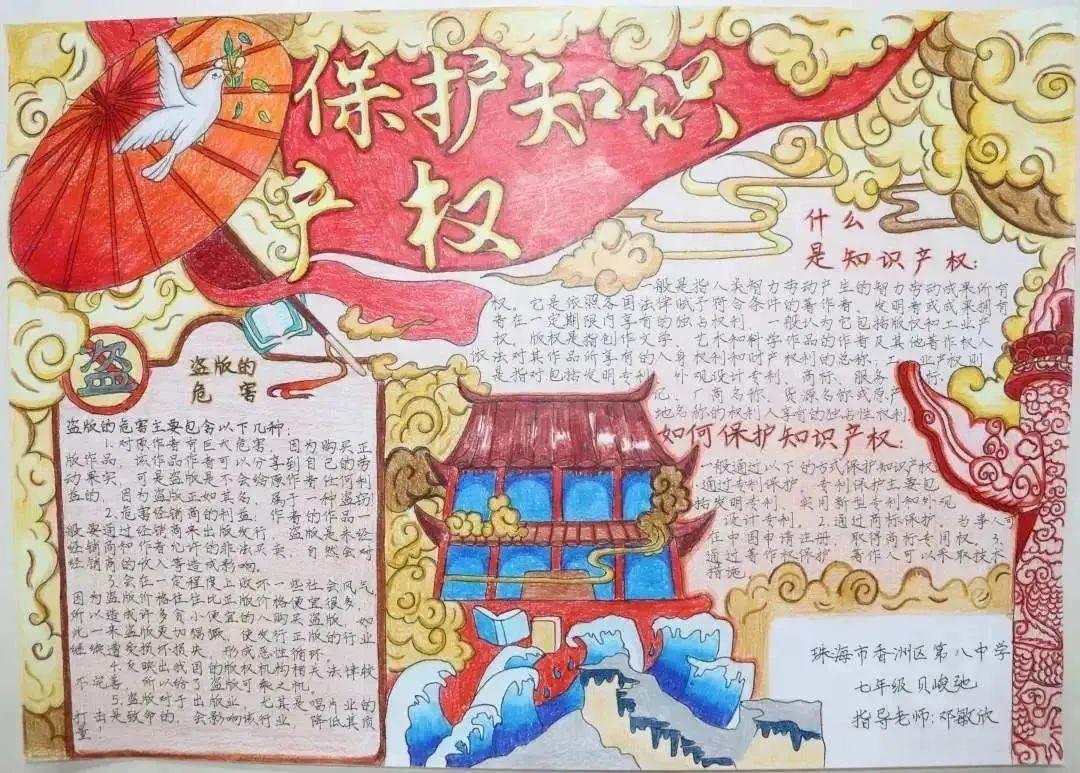 保护知识
产权
什么
是知识产权:
一般是指人类智力劳动产生的智力劳动成果所有
权。它是依照各国法律赋予符合条件的著作者、发明者或成果拥有
者在一定期限内享有的独占权利,一般认为它包括版权和工业产
权。版权是指创作文学、艺术和科学作品的作者及其他著作权人
依法对其作品所享有的人身权利和财产权利的总称;工业产权则
是指对包括发明专利、外观设计专利、商标、服务标
记、厂商名称、货源名称或原产
地名称的权利人享有的独占性权利
如何保护知识产权:
一般通过以下的方式保护知识产权
通过专利保护,专利保护主要包
括发明专利、实用新型专利和外观
设计专利。2.通过商标保护,当事人可
在中国申请注册,取得商标专用权。3.
通过著作权保护,著作人可以采取技术
措施
盗
盗版的
危害
盗版的危害主要包含以下几种:
1.对原作者有巨大危害,因为购买正
版作品,该作品作者可以分享到自己的劳
动果实,可是盗版是不会给原作者任何利
益的,因为盗版正如其名,属于一种盗窃!
2.危害经销商的利益,作者的作品一
般要通过经销商来出版发行,盗版是未经
经销商和作者允许的非法买卖,自然会对
经销商的收入等造成影响。
3.会在一定程度上败坏一些社会风气
因为盗版价格往往比正版价格便宜很多,
所以造成许多贪小便宜的人购买盗版,如
此一来盗版更加猖獗,使发行正版的行业
继续遭受损坏损失,形成恶性循环
4.反映出我国的版权机构相关法律较
不完善,所以给了盗版可乘之机。
5.盗版对于出版业,尤其是唱片业的
打击是致命的,会影响该行业,降低其质
量!
珠海市香洲区第八中学
七年级 贝峻驰
指导老师:邓敏欣